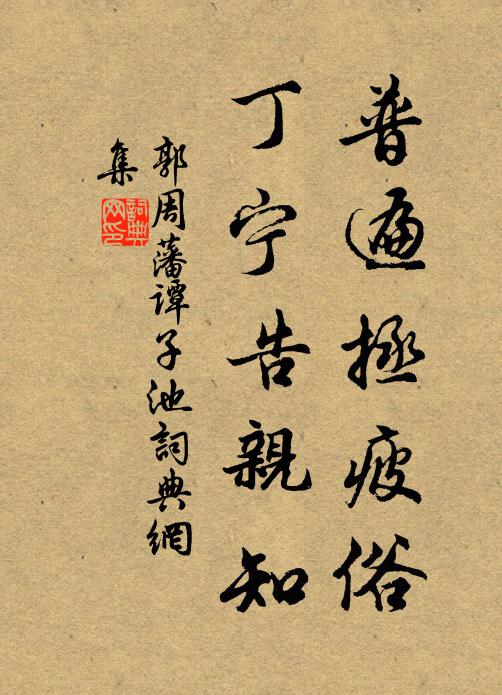 普遍拯疲俗
丁宁告親知
郭周藩譚子池詞典網
集
詞典
网印